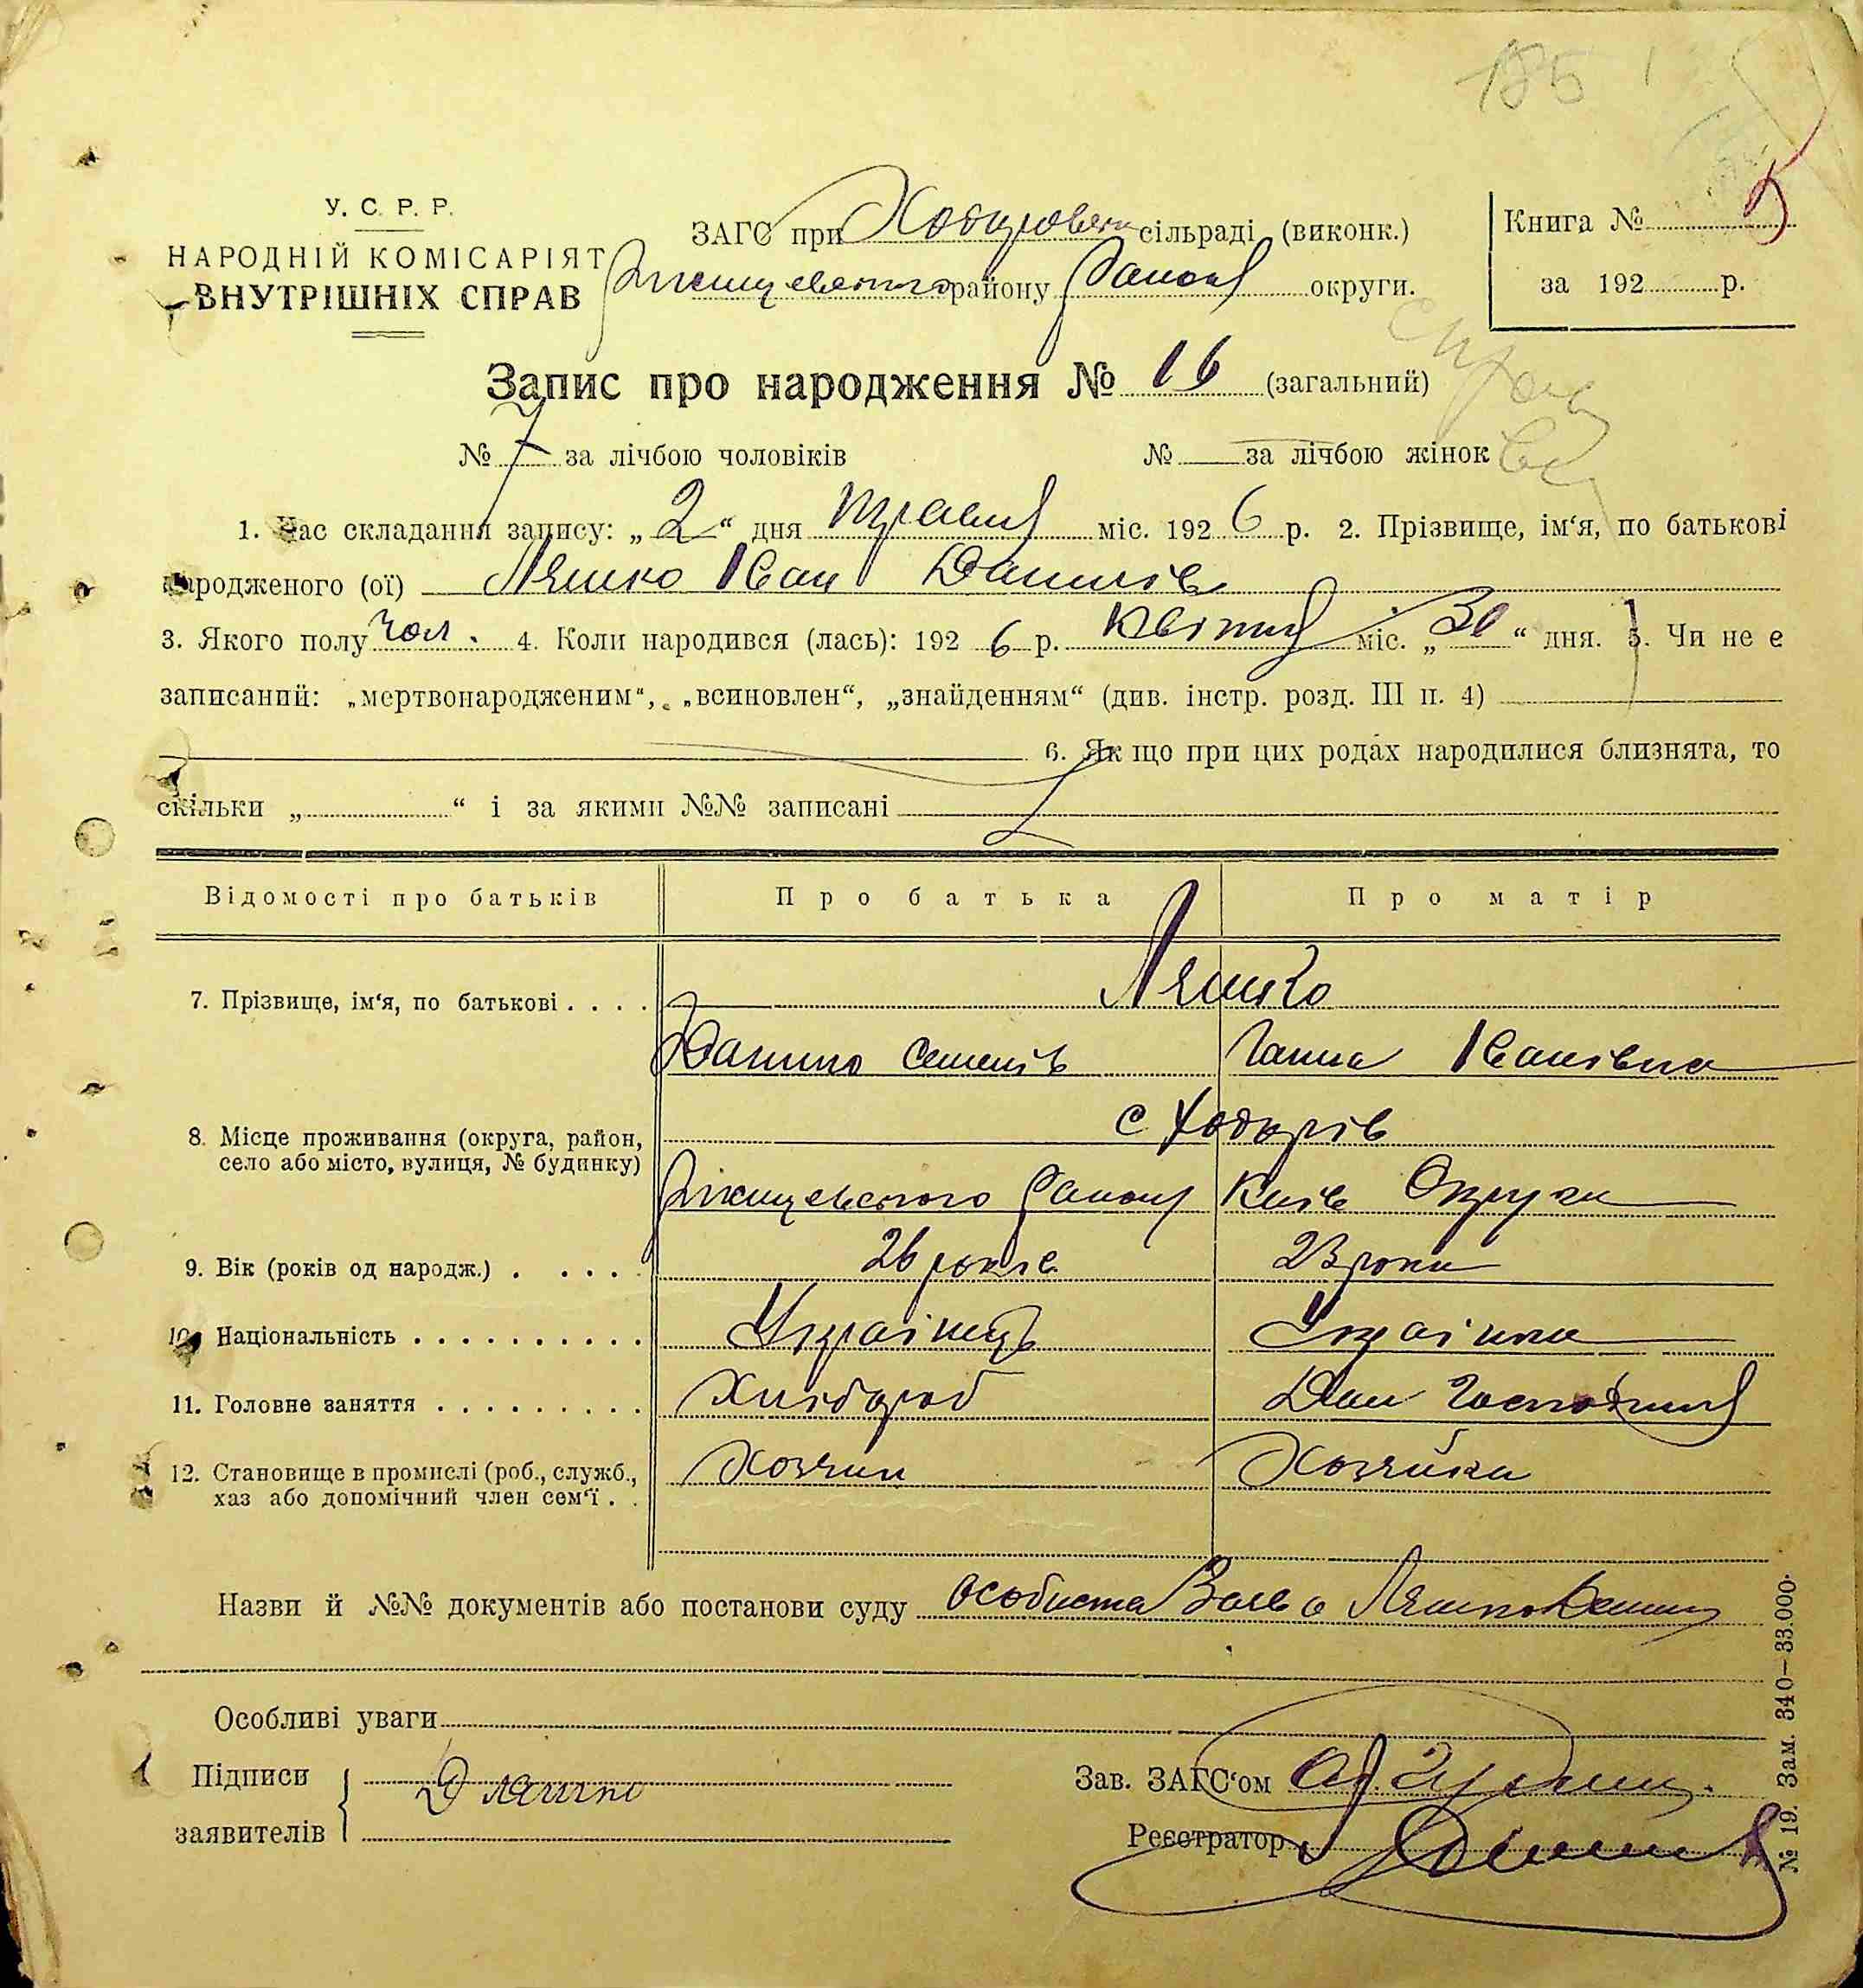 185
У. С. Р. Р.
НАРОДНІЙ КОМІСАРІЯТ
ВНУТРІШНІХ СПРАВ
ЗАГС при Ходоровськ сільраді (виконк.)
Ржищевського району округи.
Книга №
за 192 р.
Запис про народження № 16 (загальний)
№ 7 за лічбою чоловіків № за лічбою жінок
1. Час складання запису: „2“ дня травня міс. 1926 р. 2. Прізвище, ім‘я, по батькові
народженого (ої) Ляшко Іван Данилів
3. Якого полу чол. 4. Коли народився (лась): 1926 р. Квітня міс. „30“ дня. 5. Чи не є
записаний: „мертвонародженим“, „всиновлен“, „знайденням“ (див. інстр. розд. III п. 4)
6. Як що при цих родах народилися близнята, то
скільки „ “ і за якими №№ записані
Відомості про батьків Про батька Про матір
7. Прізвище, ім‘я, по батькові . . . . Ляшко
Данило Семенів Ганна Іванівна
8. Місце проживання (округа, район,
село або місто, вулиця, № будинку)
с Ходорів
Ржищевського Району Київ Округи
9. Вік (років од народж.) . . . . . 26 років 23 роки
10. Національність . . . . . . . . . . Українець Українка
11. Головне заняття . . . . . . . . . Хлібороб Дом Господиня
12. Становище в промислі (роб., служб.,
хаз або допомічний член сем‘ї . .
Хозяин Хозяйка
Назви й №№ документів або постанови суду особиста Заява Ляшко Данила
Особливі уваги
Підписи
заявителів
Д Ляшко
Зав. ЗАГС‘ом
Реєстратор
№ 19. Зам. 340—33.000.